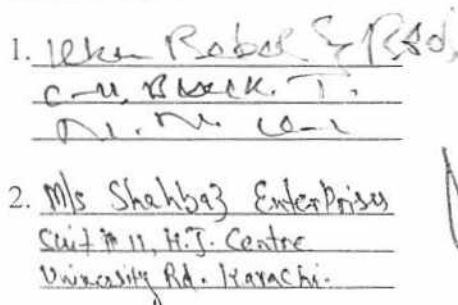 1. Babar &
C-11, Block. T.
N. N.
2. M/s Shahbaz Enterprises
Suit # 11, H.J. Centre
University Rd. Karachi.